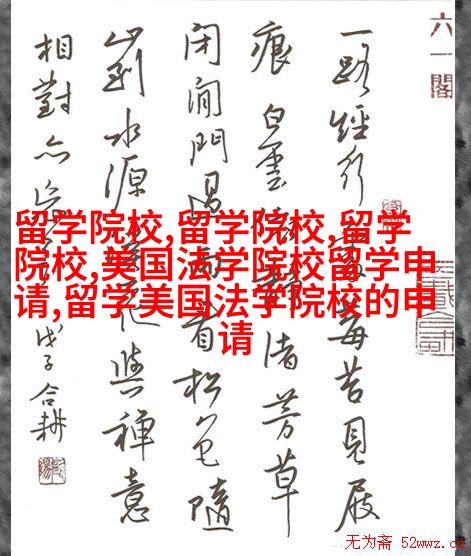 六一閣
一路經行處莓苔見屐
痕白雲依靜渚芳草
閉閒門過雨看松色隨
山到水源溪花與禅意
相對亦忘言戊子合耕
留学院校,留学院校,留学
院校,美国法学院校留学申
请,留学美国法学院校的申
请
无为斋 52wwz.c